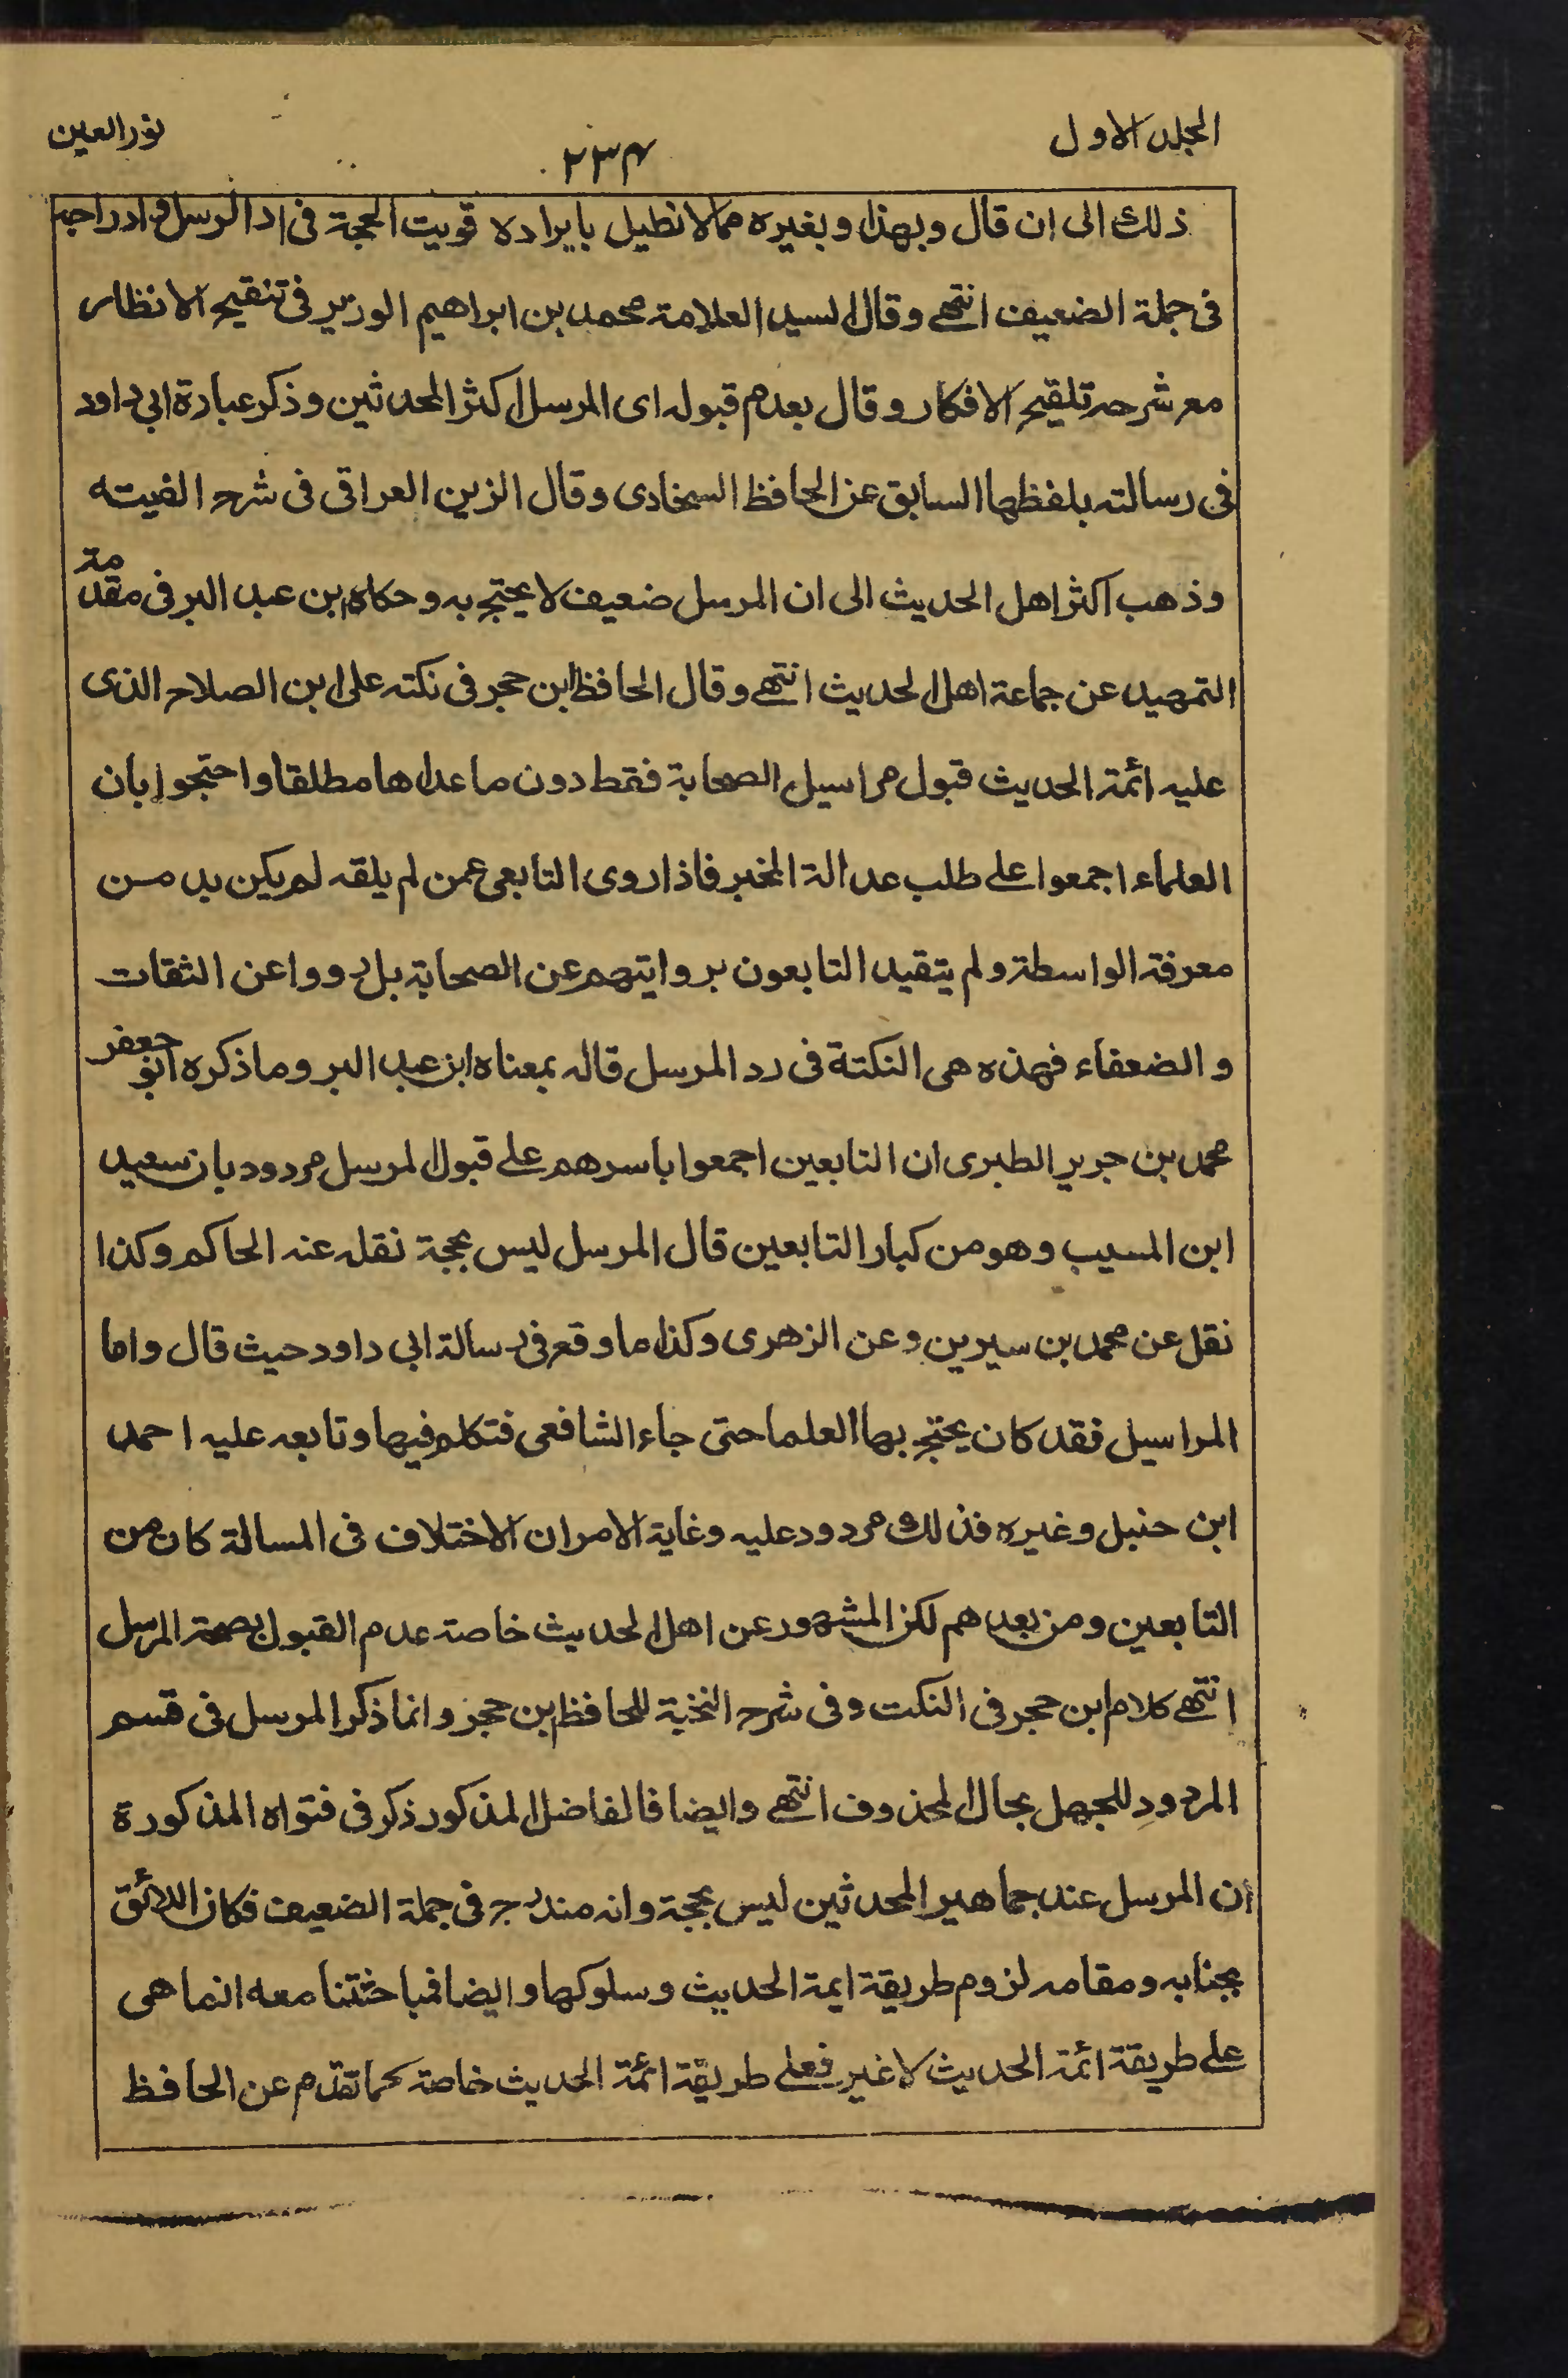 المجلد الاول
٢٣٤
نور العين
ذلك الى ان قال وبهذا وبغيره مما لا نطيل بايراده قويت الحجة فى رد المرسل وادراجه
فى جملة الضعيف انتهے وقال السيد العلامة محمد بن ابراهيم الوزير فى تنقيح الانظار
مع شرحه تلقيح الافكار وقال بعدم قبوله اى المرسل اكثر المحدثين وذكر عبارة ابى داود
فى رسالته بلفظها السابق عن الحافظ السخاوى وقال الزين العراقى فى شرح الفيته
وذهب اكثر اهل الحديث الى ان المرسل ضعيف لا يحتج به وحكاه ابن عبد البر فى مقدمة
التمهيد عن جماعة اهل الحديث انتهے وقال الحافظ ابن حجر فى نكته على ابن الصلاح الذى
عليه ائمة الحديث قبول مراسيل الصحابة فقط دون ما عداها مطلقا واحتجوا بان
العلماء اجمعوا علے طلب عدالة المخبر فاذا روى التابعى عمن لم يلقه لم يكن بد من
معرفة الواسطة ولم يتقيد التابعون بروايتهم عن الصحابة بل رووا عن الثقات
و الضعفاء فهذه هى النكتة فى رد المرسل قاله بمعناه ابن عبد البر وما ذكره ابو جعفر
محمد بن جرير الطبرى ان التابعين اجمعوا باسرهم علے قبول المرسل مردود بان سعيد
ابن المسيب وهو من كبار التابعين قال المرسل ليس بحجة نقله عنه الحاكم وكذا
نقل عن محمد بن سيرين وعن الزهرى وكذا ما وقع فى رسالة ابى داود حيث قال واما
المراسيل فقد كان يحتج بها العلما حتى جاء الشافعى فتكلم فيها وتابعه عليه احمد
ابن حنبل وغيره فذلك مردود عليه وغاية الامر ان الاختلاف فى المسالة كان من
التابعين ومن بعدهم لكن المشهور عن اهل الحديث خاصة عدم القبول بصحة المرسل
انتهے كلام ابن حجر فى النكت وفى شرح النخبة للحافظ ابن حجر وانما ذكر المرسل فى قسم
المردود للجهل بحال المحذوف انتهے وايضا فالفاضل المذكور ذكر فى فتواه المذكورة
ان المرسل عند جماهير المحدثين ليس بحجة وانه مندرج فى جملة الضعيف فكان اللائق
بجنابه ومقامه لزوم طريقة ايمة الحديث وسلوكها وايضا فمباحثتنا معه انما هى
علے طريقة ائمة الحديث لا غير فعلے طريقة ائمة الحديث خاصة كما تقدم عن الحافظ